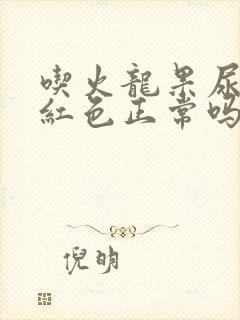 喫火龍果尿
紅色正常嗎
倪明